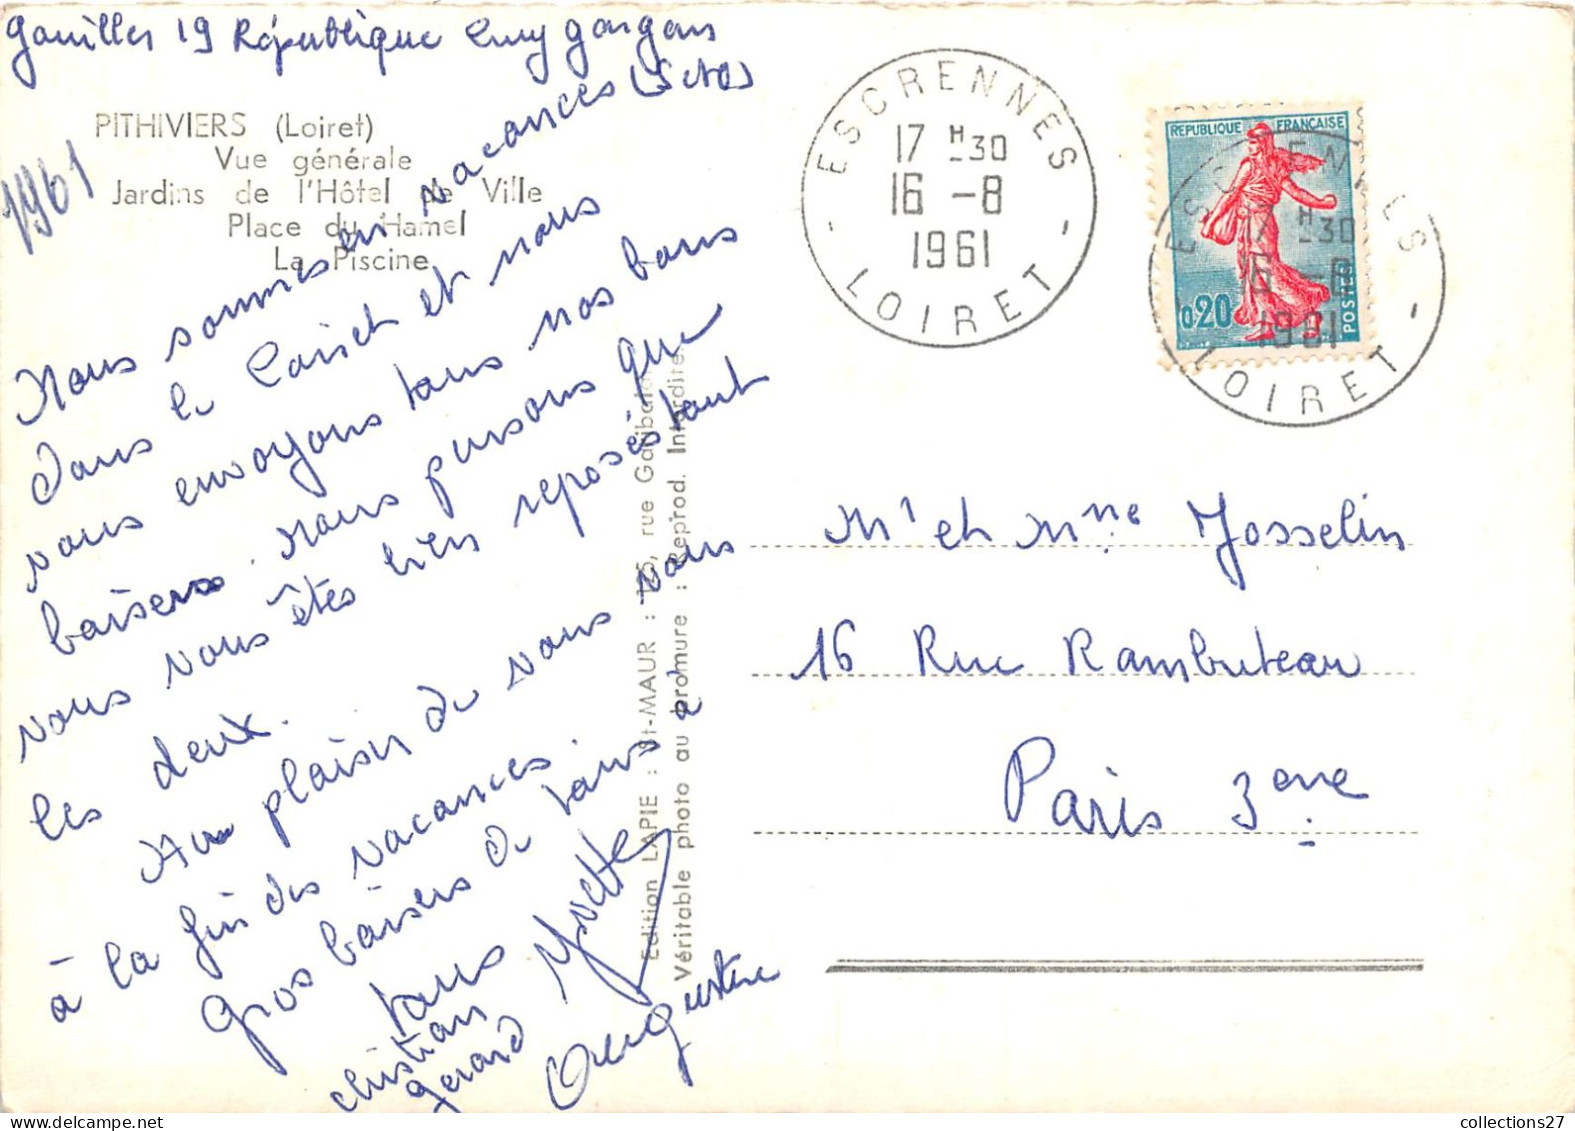 19 République
(S et O)
PITHIVIERS (Loiret)
Vue générale
Jardins de l'Hôtel de Ville
Place du Hamel
La Piscine
1961
Nous sommes en vacances
dans le Loiret et nous
vous envoyons tous nos bons
baisers. Nous pensons que
vous vous êtes bien reposés tout
les deux.
Au plaisir de vous vous
à la fin des vacances.
Gros baisers de tous à
tous
Yvette
Christian
Gerard
Augustine
Edition LAPIE : St-MAUR : rue
Véritable photo au bromure : Reprod. Interdite.
ESCRENNES
17 H 30
16 - 8
1961
LOIRET
REPUBLIQUE FRANÇAISE
0,20
POSTES
ESCRENNES
17 H 30
16 - 8
1961
LOIRET
Mr et Mme Josselin
16 Rue Rambuteau
Paris 3ème
collections27